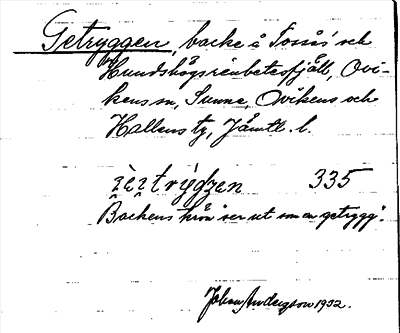 Getryggen, backe å Tossås' och
Hundshögsrenbetesfjäll, Ovi-
kens sn, Sunne, Ovikens och
Hallens tg, Jämtl. l.
335
Backens krön ser ut som en getrygg.
Johan Anderson 1932.